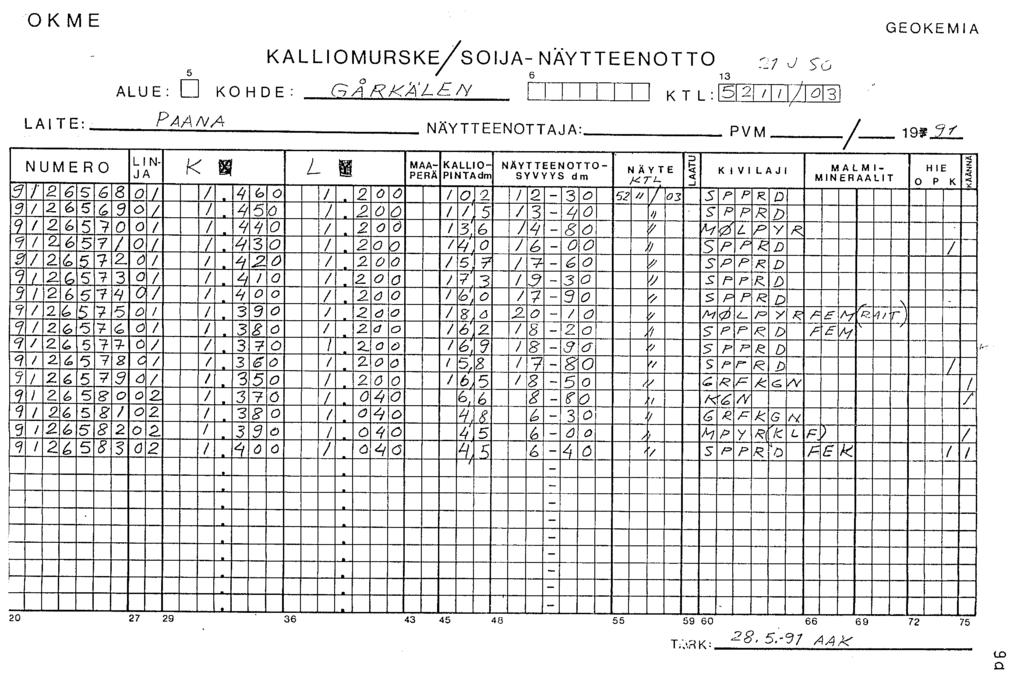 OKME
GEOKEMIA
KALLIOMURSKE/SOIJA-NÄYTTEENOTTO
5 6 13
ALUE: KOHDE: GÅRKÄLEN KTL: 5211/03
LAITE: PAANA NÄYTTEENOTTAJA: PVM / 1991
NUMERO LIN-JA K L MAA-PERÄ KALLIO-PINTA dm NÄYTTEENOTTO-SYVYYS dm NÄYTE KTL LAATU KIVILAJI MALMI-MINERAALIT HIE O P K KÄÄNNÄ
9126568 01 1.460 1.200 10,2 12-30 5211/03 SPPRD
9126569 01 1.450 1.200 11,5 13-40 " SPPRD
9126570 01 1.440 1.200 13,6 14-80 " MØLPYR
9126571 01 1.430 1.200 14,0 16-00 " SPPRD /
9126572 01 1.420 1.200 15,7 17-60 " SPPRD
9126573 01 1.410 1.200 17,3 19-30 " SPPRD
9126574 01 1.400 1.200 16,0 17-90 " SPPRD
9126575 01 1.390 1.200 18,0 20-10 " MØLPYR FEM(RAIT)
9126576 01 1.380 1.200 16,2 18-20 " SPPRD FEM
9126577 01 1.370 1.200 16,9 18-90 " SPPRD
9126578 01 1.360 1.200 15,8 17-80 " SPPRD /
9126579 01 1.350 1.200 16,5 18-50 " GRFKGN /
9126580 02 1.370 1.040 6,6 8-80 " KGN /
9126581 02 1.380 1.040 4,8 6-30 " GRFKGN
9126582 02 1.390 1.040 4,5 6-00 " MPYR(KLF) /
9126583 02 1.400 1.040 4,5 6-40 " SPPRD FEK / /
20 27 29 36 43 45 48 55 59 60 66 69 72 75
TARK: 28.5.-91 AAK
9d